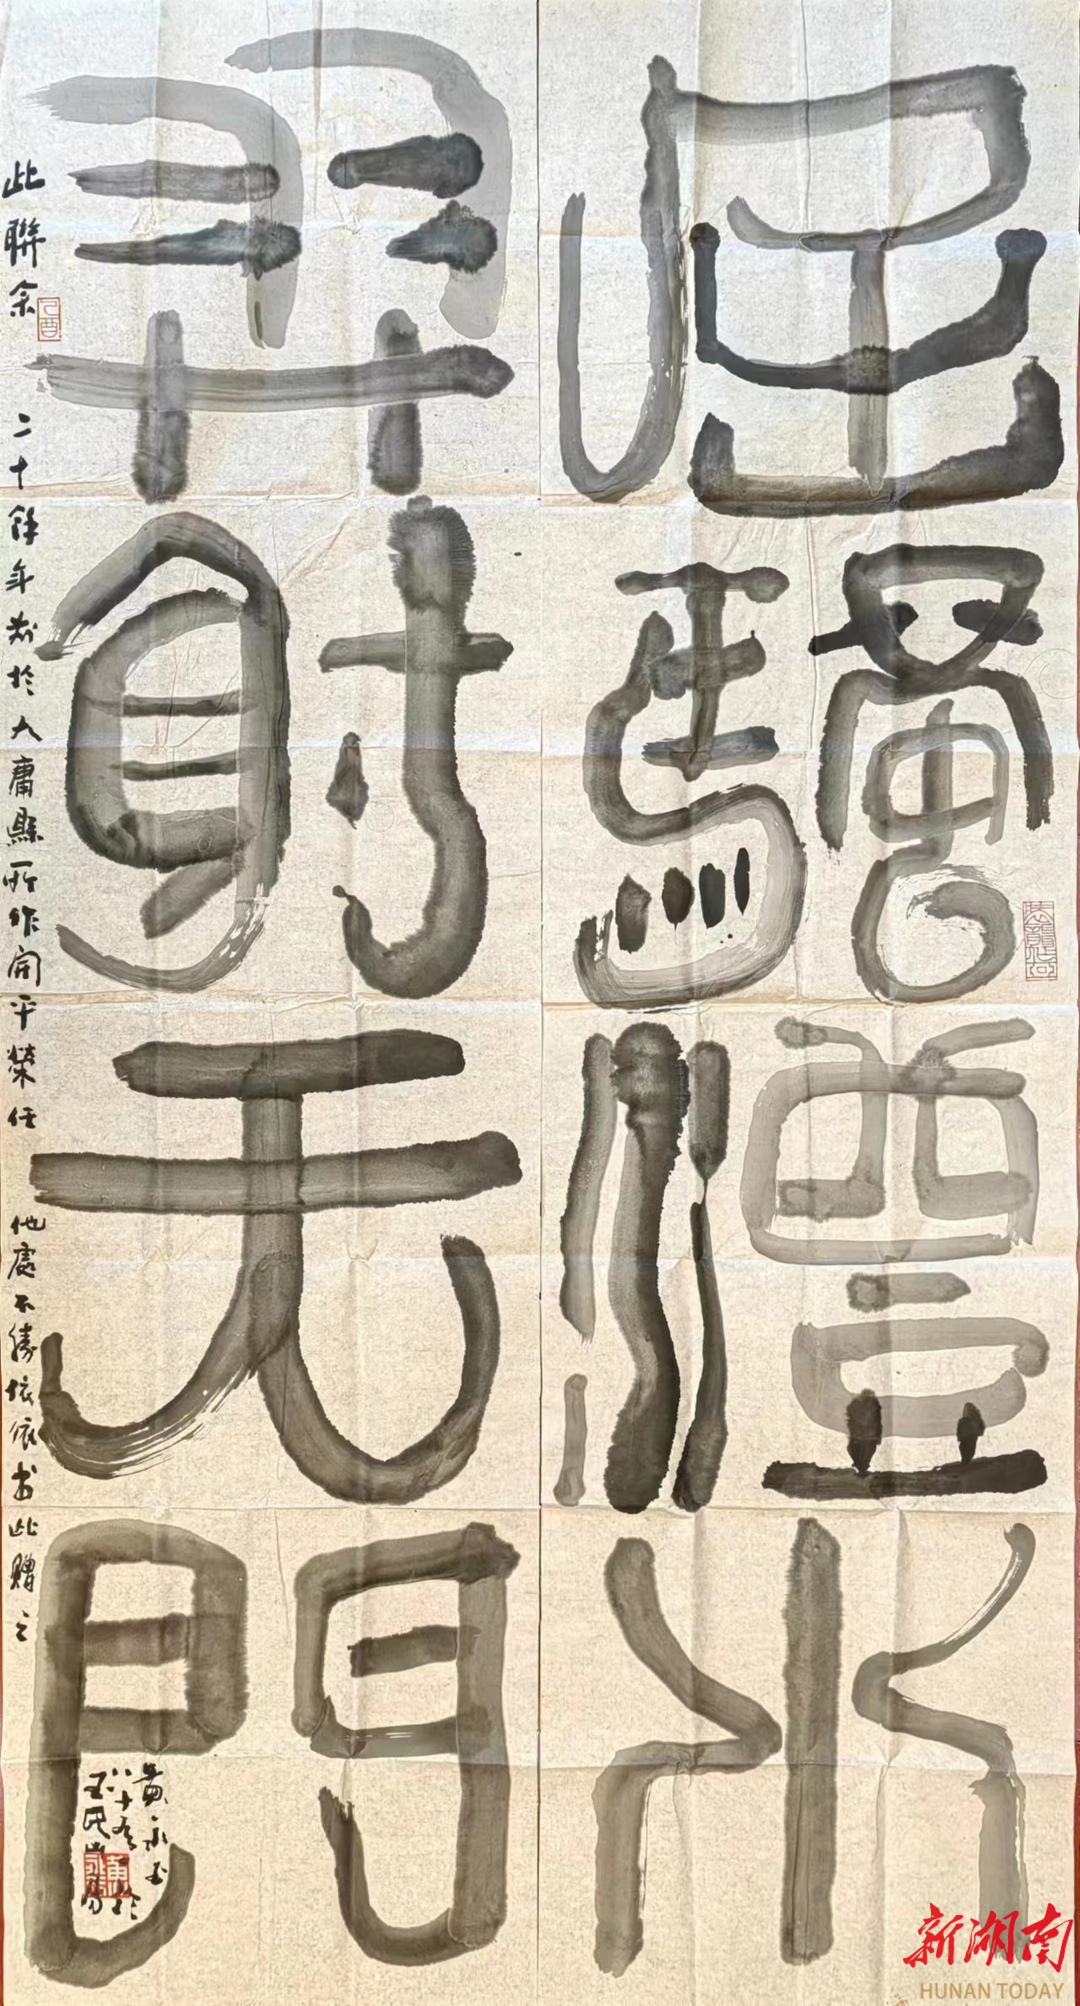 屈騷澧水
羿射天門
此聯余二十餘年前於大庸縣所作開平榮任他處不勝依依書此贈之
黄永玉於
八十
玉氏山房
新湖南
HUNAN TODAY